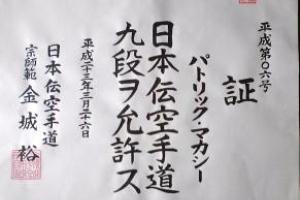 平成第〇六号
証
パトリック・マカシー
日本伝空手道
九段ヲ允許ス
平成二十三年三月二十六日
日本伝空手道
宗師範 金城裕